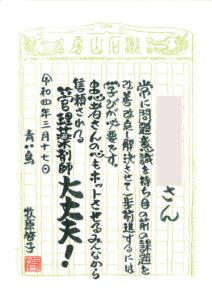 漱石山房
さん
常に問題意識を持ち目の前の課題を
改善改良し解決させてするには
学びが必要です。
患者さんの心もホットさせるみんなから
信頼される
管理薬剤師 大丈夫!
令和四年三月十七日
青い鳥
牧原啓子